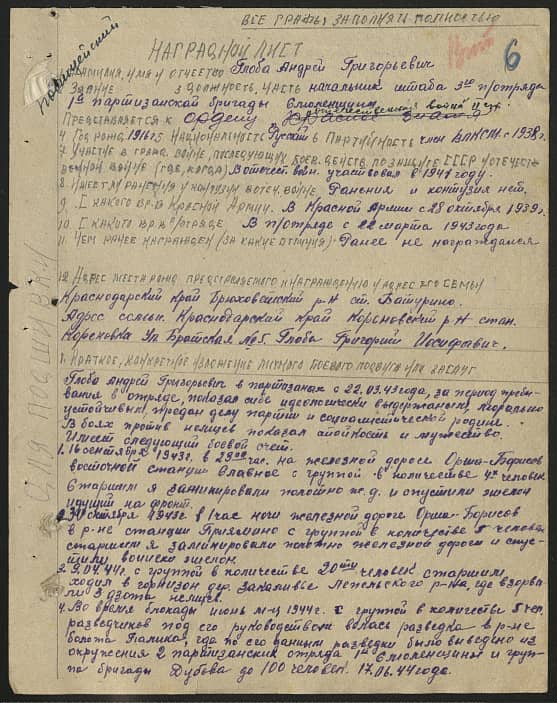 ВСЕ ГРАФЫ ЗАПОЛНЯТЬ ПОЛНОСТЬЮ
6
НАГРАДНОЙ ЛИСТ
ФАМИЛИЯ, ИМЯ И ОТЧЕСТВО Глоба Андрей Григорьевич
ЗВАНИЕ 3 ДОЛЖНОСТЬ, ЧАСТЬ начальник штаба 3го п/отряда
1ой партизанской бригады Смоленщины
ПРЕДСТАВЛЯЕТСЯ К ордену Отечественной войны II ст.
4. ГОД РОЖД. 1916г. 5 НАЦИОНАЛЬНОСТЬ Русский 6 ПАРТИЙНОСТЬ член ВЛКСМ с 1938г.
7 УЧАСТИЕ В ГРАЖД. ВОЙНЕ, ПОСЛЕДУЮЩИХ БОЕВ. ДЕЙСТВ. ПО ЗАЩИТЕ СССР И ОТЕЧЕСТ-
ВЕННОЙ ВОЙНЕ (ГДЕ, КОГДА) В отечест. войн. участвовал в 1941 году.
8 ИМЕЕТ ЛИ РАНЕНИЯ И КОНТУЗИИ В ОТЕЧ. ВОЙНЕ. Ранения и контузии нет.
9 С КАКОГО ВР. В КРАСНОЙ АРМИИ. В Красной Армии с 28 октября 1939г.
10 С КАКОГО ВР. В П/ОТРЯДЕ. В п/отряде с 22 марта 1943 года
11 ЧЕМ РАНЕЕ НАГРАЖДЕН (ЗА КАКИЕ ОТЛИЧИЯ) Ранее не награждался
12 АДРЕС МЕСТА РОЖД. ПРЕДСТАВЛЯЕМОГО К НАГРАЖДЕНИЮ И АДРЕС ЕГО СЕМЬИ
Краснодарский край Брюховетский р-н ст. Батурино.
Адрес семьи. Краснодарский край Кореновский р-н стан.
Кореновка Ул Братская № 5. Глоба Григорий Иосифович.
1. КРАТКОЕ, КОНКРЕТНОЕ ИЗЛОЖЕНИЕ ЛИЧНОГО БОЕВОГО ПОДВИГА ИЛИ ЗАСЛУГ
Глоба Андрей Григорьевич в партизанах с 22.03.43 года, за период пребы-
вания в отряде, показал себя идеологически выдержанным, морально
устойчивым, предан делу партии и социалистической родине.
В боях против немцев показал стойкость и мужество.
Имеет следующий боевой счет.
1. 16 сентября 1943г. в 23 00 час. на железной дороге Орша-Борисов
восточной станции Славное с группой в количестве 4х человек
старшим я заминировали полотно ж.д. и опустили эшелон
идущий на фронт.
октября 1943г. в 1 час ночи железной дороге Орша-Борисов
в р-не станции Приямино с группой в количестве 5 человек
старшим я заминировали полотно железной дороги и спус-
тили воинск эшелон.
3. 9.04.44г. с группой в количестве 20ти человек старшим
ходил в гарнизон дер. Лепельского р-на, где взорва
ли 3 дзота немцев.
4. Во время блокады июнь м-ц 1944г. с группой в количестве 5 чел.
разведчиков под его руководством велась разведка в р-не
болота Палика, где по его данным разведки было выведено из
окружения 2 партизанских отряда 1ой Смоленщины и груп-
па бригады Дубова до 100 человек. 17.06.44 года.